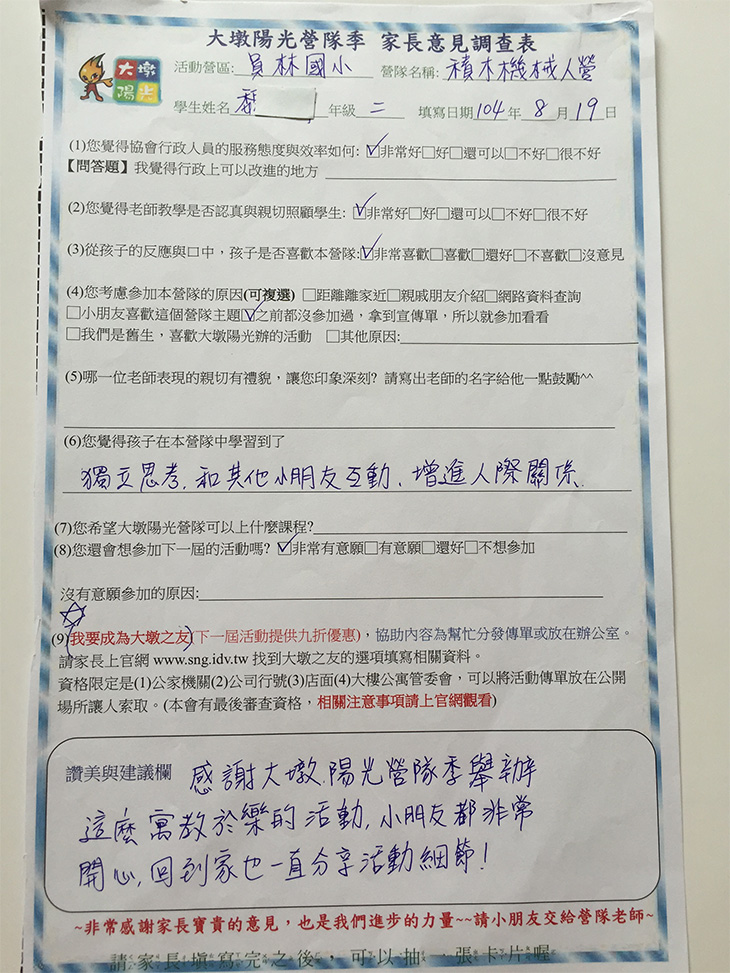 大墩陽光營隊季 家長意見調查表
大墩
陽光
活動營區: 員林國小 營隊名稱: 積木機械人營
學生姓名 年級 二 填寫日期 104 年 8 月 19 日
(1)您覺得協會行政人員的服務態度與效率如何: ☑非常好□好□還可以□不好□很不好
【問答題】我覺得行政上可以改進的地方
(2)您覺得老師教學是否認真與親切照顧學生: ☑非常好□好□還可以□不好□很不好
(3)從孩子的反應與口中，孩子是否喜歡本營隊:☑非常喜歡□喜歡□還好□不喜歡□沒意見
(4)您考慮參加本營隊的原因(可複選) □距離離家近□親戚朋友介紹□網路資料查詢
□小朋友喜歡這個營隊主題☑之前都沒參加過，拿到宣傳單，所以就參加看看
□我們是舊生，喜歡大墩陽光辦的活動 □其他原因:
(5)哪一位老師表現的親切有禮貌，讓您印象深刻? 請寫出老師的名字給他一點鼓勵^^
(6)您覺得孩子在本營隊中學習到了
獨立思考, 和其他小朋友互動、增進人際關係.
(7)您希望大墩陽光營隊可以上什麼課程?
(8)您還會想參加下一屆的活動嗎? ☑非常有意願□有意願□還好□不想參加
沒有意願參加的原因:
(9)(我要成為大墩之友)(下一屆活動提供九折優惠)，協助內容為幫忙分發傳單或放在辦公室。
請家長上官網 www.sng.idv.tw 找到大墩之友的選項填寫相關資料。
資格限定是(1)公家機關(2)公司行號(3)店面(4)大樓公寓管委會，可以將活動傳單放在公開
場所讓人索取。(本會有最後審查資格，相關注意事項請上官網觀看)
讚美與建議欄 感謝大墩陽光營隊季舉辦
這麼寓教於樂的活動, 小朋友都非常
開心, 回到家也一直分享活動細節!
~非常感謝家長寶貴的意見，也是我們進步的力量~~請小朋友交給營隊老師~
請家長填寫完之後，可以抽一張卡片喔